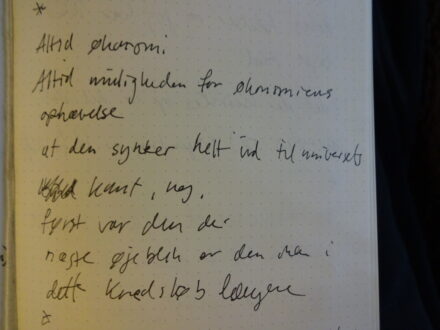 *
Altid økonomi.
Altid muligheden for økonomiens
ophævelse
at den synker helt ind til universets
kant, nej,
først var den der
næste øjeblik er den ikke i
dette kredsløb længere
*